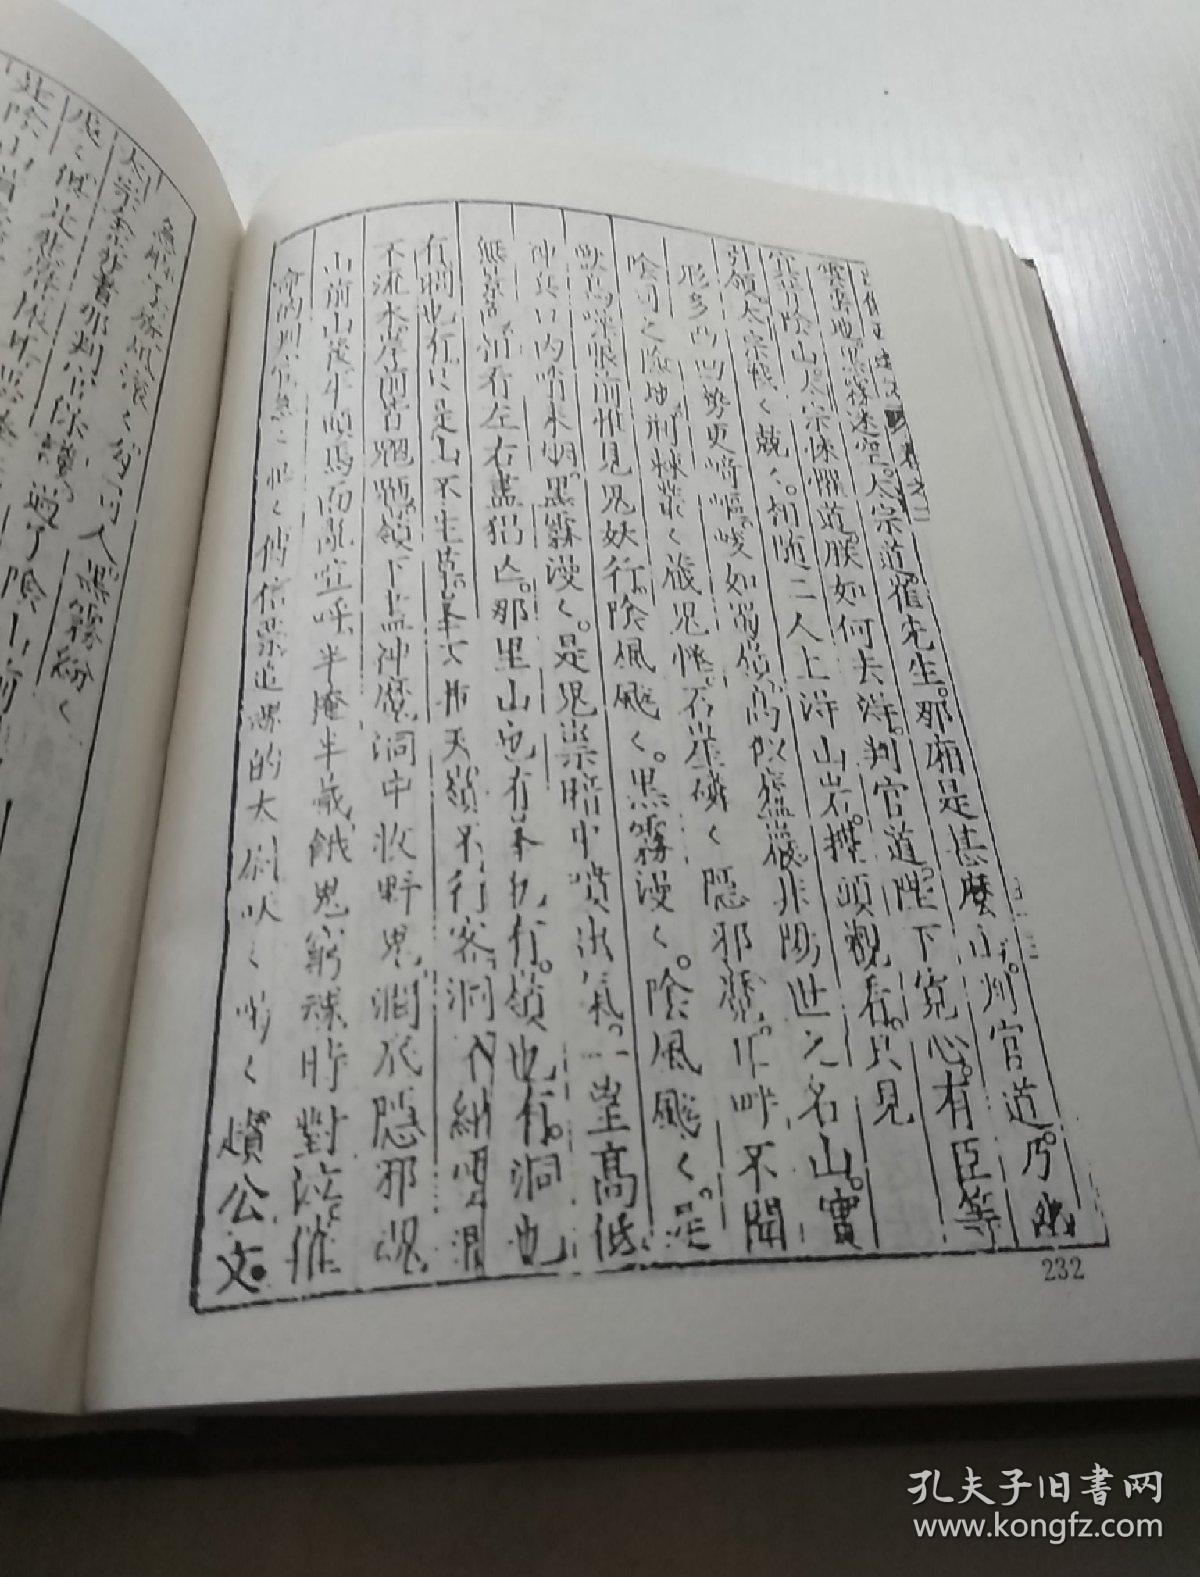 雲罩地黑霧迷空太宗道崔先生那廂是甚麼山判官道乃幽
冥背陰山太宗悚懼道朕如何去得判官道陛下寬心有臣等
引領太宗戰〻兢〻相隨二人上得山岩擡頭觀看只見
形多凸凹勢更崎嶇峻如蜀嶺高似廬巖非陽世之名山實
陰司之險地荊棘叢〻藏鬼怪石崖磷〻隱邪魔耳畔不聞
獸鳥噪眼前惟見鬼妖行陰風颼〻黑霧漫〻陰風颼〻是
神兵口內哨來烟黑霧漫〻是鬼祟暗中噴出氣一望高低
無景色相看左右盡猖亡那里山也有峯也有嶺也有洞也
有澗也有只是山不生草峯不插天嶺不行客洞不納雲澗
不流水岸前皆魍魎嶺下盡神魔洞中收野鬼澗底隱邪魂
山前山後牛頭馬面亂喧呼半掩半藏餓鬼窮魂時對泣催
命的判官急〻忙〻傳信票追魂的太尉吆〻喝〻趲公文
急腳子旋風滾〻勾司人黑霧紛〻
太宗全靠着那判官保護過了陰山前
232
孔夫子旧书网
www.kongfz.com